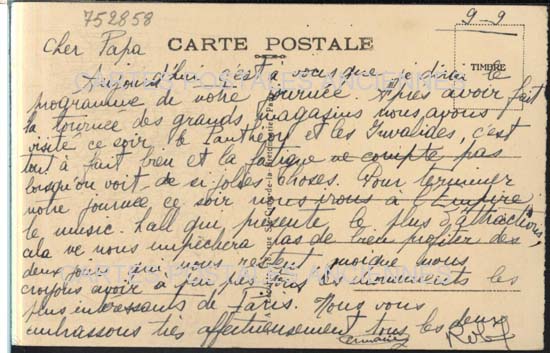 752858
9-9
Cher Papa
CARTE POSTALE
TIMBRE
Aujourd'hui c'est à vous que je dirai le
programme de notre journée. Après avoir fait
la tournée des grands magasins nous avons
visité ce soir le Panthéon et les Invalides, c'est
tout à fait bien et la fatigue ne compte pas
lorsqu'on voit de si jolies choses. Pour terminer
notre journée ce soir nous irons à l'Empire
le music-hall qui présente le plus d'attractions,
cela ne nous empêchera pas de bien profiter des
deux jours qui nous restent quoique nous
croyons avoir vu à peu près tous les monuments les
plus intéressants de Paris. Nous vous
embrassons très affectueusement tous les deux
Germaine
CARTES POSTALES ANCIENNES